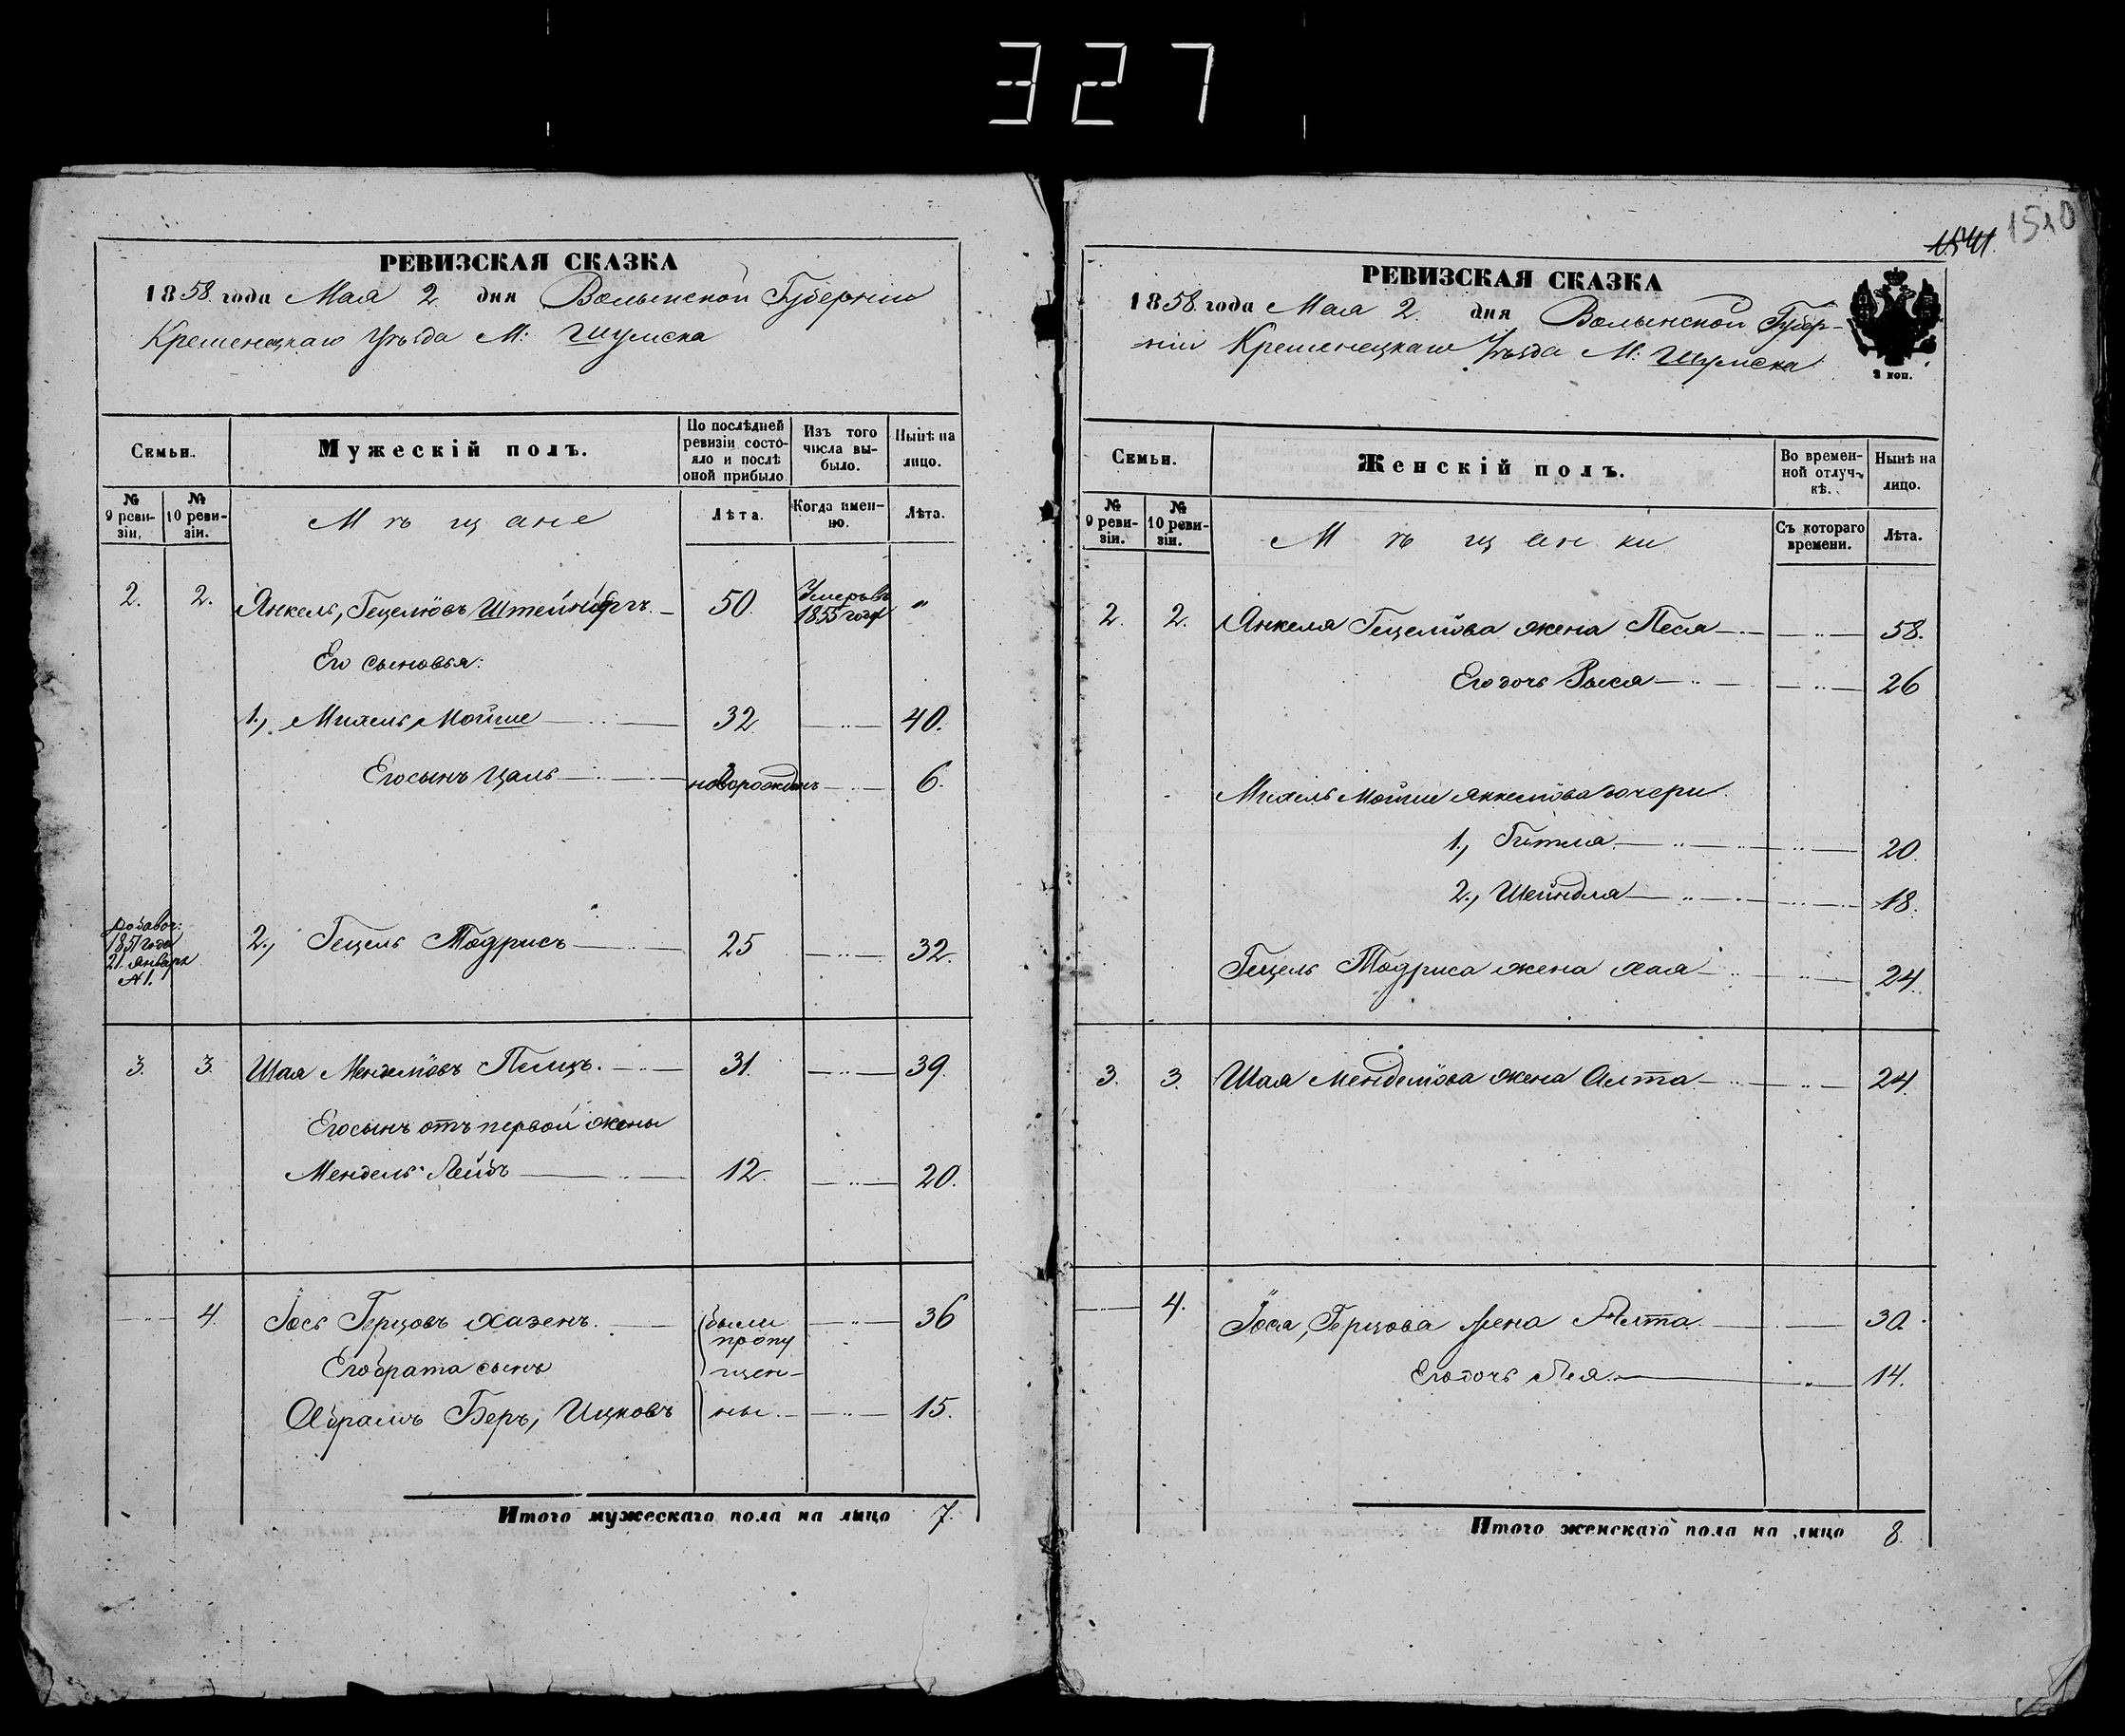 327
РЕВИЗСКАЯ СКАЗКА
1858 года Мая 2 дня Волынской Губернiи
Кременецкаго Уѣзда М: Шумска
Семьи.
Мужескiй полъ.
По послѣдней ревизiи состояло и послѣ оной прибыло
Изъ того числа выбыло.
Нынѣ на лицо.
№ 9 ревизiи.
№ 10 ревизiи.
Мѣщане
Лѣта.
Когда именно.
Лѣта.
2. 2. Янкель, Гецелiовъ Штейнбергъ 50 Умеръ въ 1855 года "
Его сыновья:
1., Михель Мойше 32 40.
Его сынъ Цаль новорожденъ 6.
Добавоч: 1851 года 21 Января №1.
2., Гецель Тодрисъ 25 32.
3. 3. Шая Менделiовъ Пельцъ. 31. 39.
Его сынъ отъ первой жены
Мендель Лейбъ 12. 20.
4. Iось Герцовъ Хазенъ. были пропу 36
Его брата сынъ щен-
Абрамъ Беръ, Ицковъ ны. 15.
Итого мужескаго пола на лицо 7.
1540
1541.
РЕВИЗСКАЯ СКАЗКА
1858. года Мая 2. дня Волынской Губер-
нiи Кременецкаго Уѣзда М: Шумска
3 коп.
Семьи.
Женскiй полъ.
Во временной отлучкѣ.
Нынѣ на лицо.
№ 9 ревизiи.
№ 10 ревизiи.
Мѣщанки
Съ котораго времени.
Лѣта.
2. 2. Янкеля Гецелiова жена Песя 58.
Его дочь Рыся 26
Михель Мойше Янкелiова дочери
1., Гитля 20.
2., Шейндля 18.
Гецель Тодриса жена Хая 24.
3. 3. Шая Менделiова жена Алта 24.
4. Iося, Герцова жена Алта 30.
Его дочь Лея 14.
Итого женскаго пола на лицо 8.